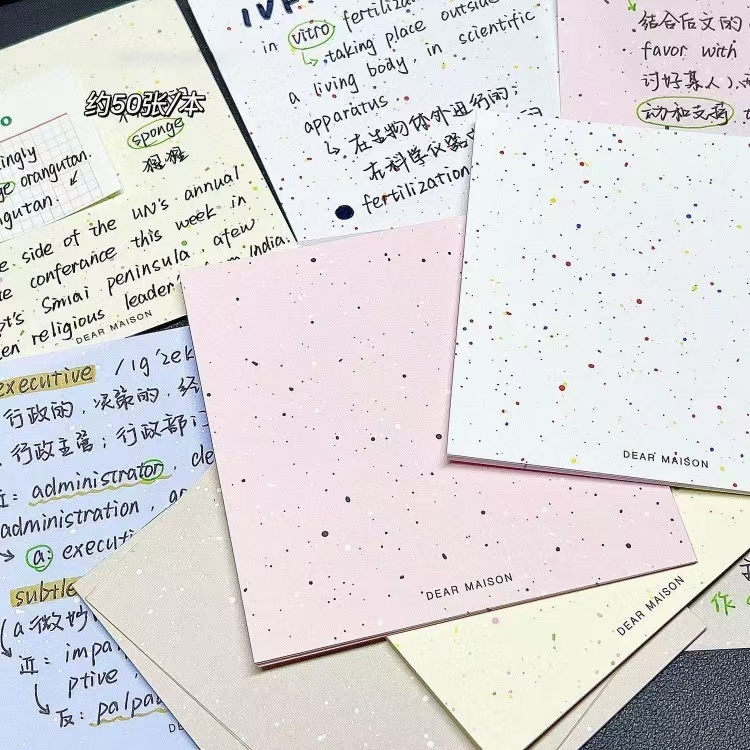 约50张/本
sponge
猩猩
orangutan.
side of the UN's annual
conferance this week in
Sinai peninsula, afew
religious leader from India.
DEAR MAISON
in vitro
↳ taking place outside
a living body, in scientific
apparatus
↳ 在生物体外进行的;
在科学仪器
fertilization
结合后文的
favor with
讨好某人)
动和支撑
executive
行政的, 决策的,
行政主管; 行政部门
近: administrator,
administration,
a: executi
subtle
a: 微妙
近: impa
ptive,
反: palpa
DEAR MAISON
DEAR MAISON
DEAR MAISON
作